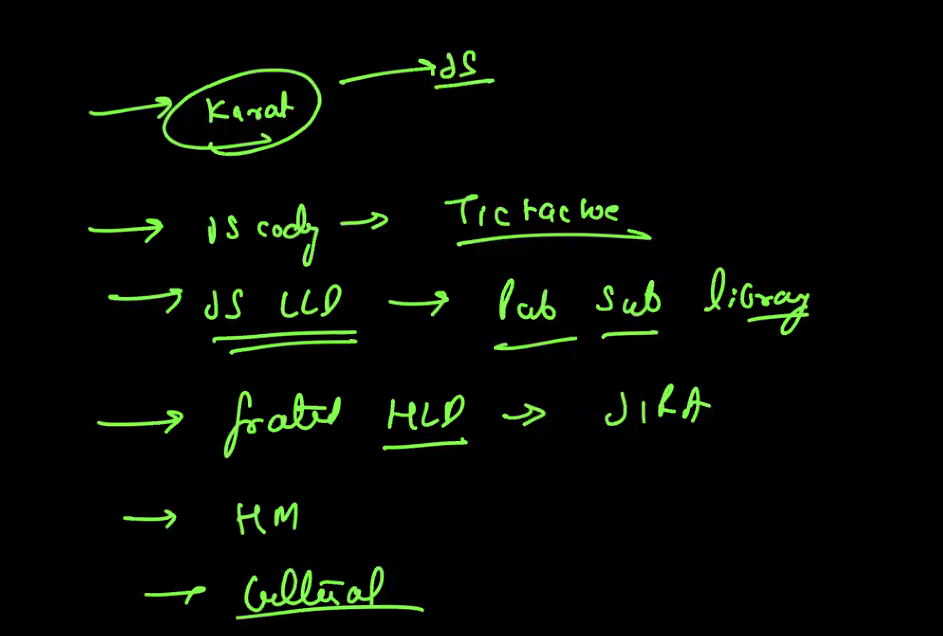 Karat → JS
→ JS cody → Tic tac toe
→ JS LLD → Pub Sub library
→ HLD → JIRA
→ HM
→ Cultural